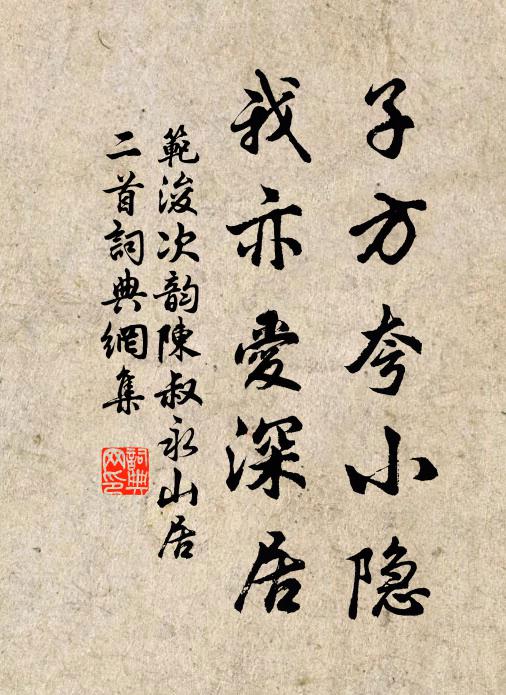 子方夸小隐
我亦愛深居
範浚次韵陳叔永山居
二首詞典網集
詞典网印